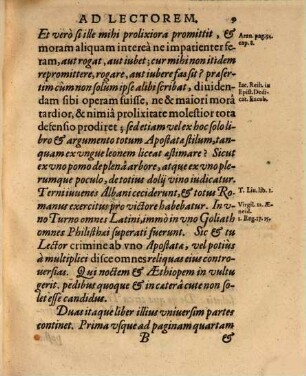 AD LECTOREM. 9
Et verò si ille mihi prolixiora promittit, &
moram aliquam intereà ne impatienter fe-
ram, aut rogat, aut iubet; cur mihi non itidem
repromittere, rogare, aut iubere fas sit? præser-
tim cum non solum ipse alibi scribat, diuiden-
dam sibi operam fuisse, ne & maiori morâ
tardior, & nimiâ prolixitate molestior tota
defensio prodiret; sed etiam vel ex hoc solo li-
bro & argumento totum Apostatæ stilum, tan-
quam ex vngue leonem liceat æstimare? Sicut
ex vno pomo de plenâ arbore, atque ex vno ple-
rumque poculo, de totius dolij vino iudicatur.
Terni iuuenes Albani ceciderunt, & totus Ro-
manus exercitus pro victore habebatur. In v-
no Turno omnes Latini, immò in vno Goliath
omnes Philisthæi superati fuerunt. Sic & tu
Lector crimine ab vno Apostatæ, vel potiùs
à multiplici disce omnes reliquas eius contro-
uersias. Qui noctem & Æthiopem in vultu
gerit, pedibus quoque & in cæterâ cute non so-
let esse candidus.
Duas itaque liber illius vniuersim partes
continet. Prima vsque ad paginam quartam
B &
Aron. pag. 94.
cap. 8.
Iar. Reth. in
Epist. Dedi-
cat.
T. Liu. lib. 1.
Virgil. 12. Æ-
neid.
1. Reg. 17.